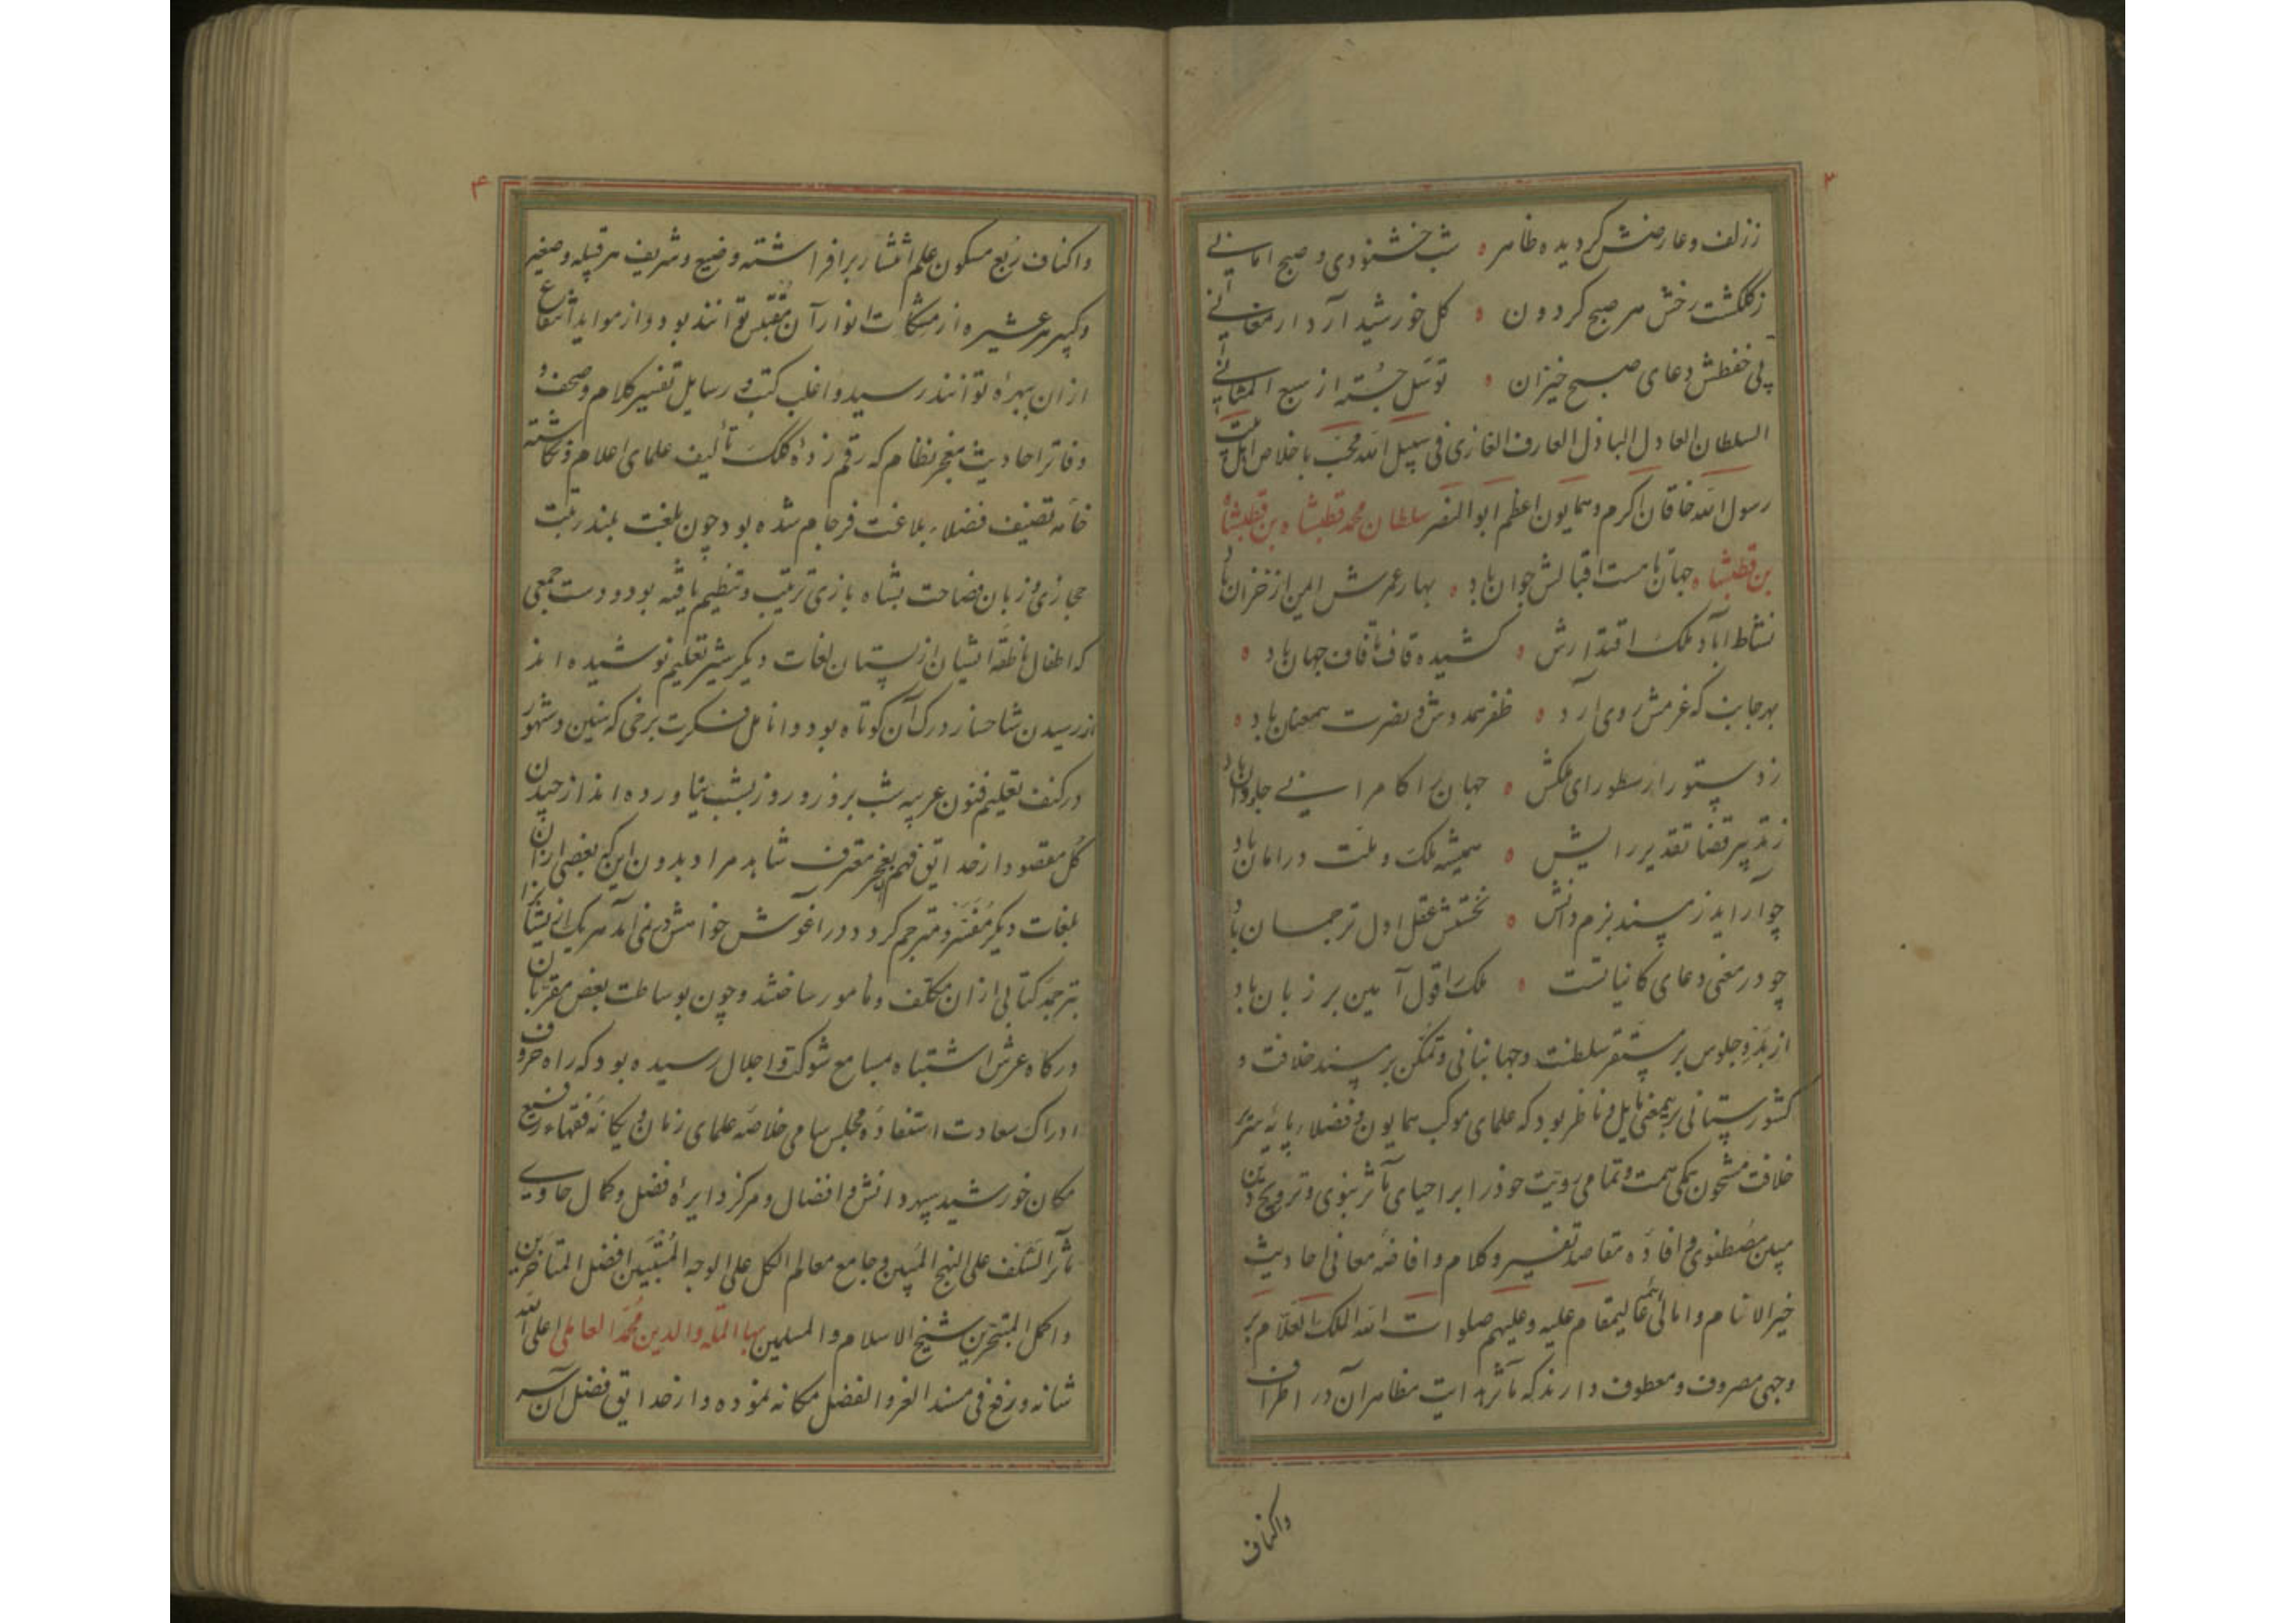 ۳
ز زلف و عارضش کردیده ظاهر ه شب خشنودی و صبح امانی
ز کلکشت رخش هر صبح کردون ه کل خورشید آرد ارمغانی
پی حفظش دعای صبح خیزان ه توسل جُسته از سبع المثانی
السلطان العادل الباذل العارف الغازی فی سبیل الله محب باخلاص اهل بیت
رسول الله خاقان اکرم و همایون اعظم ابوالمنصر سلطان محمد قطبشاه بن قطبشاه
بن قطبشاه جهان تا هست اقبالش جوان باد ه بهار عمرش ایمن از خزان باد
نشاط اباد ملک اقتدارش ه کشیده قاف تا قاف جهان باد ه
بهر جانب که عزمش روی آرد ه ظفر همدوش و نصرت همعنان باد ه
ز دستور ارسطو رای ملکش ه جهان را کامرانی جاودان باد
ز تدبیر قضا تقدیر رایش ه همیشه ملک و ملت در امان باد
چو آراید ز مسند بزم دانش ه نخستش عقل اول ترجمان باد
چو در معنی دعای کاینات است ه ملک را قول آمین بر زبان باد
از بدو جلوس بر مستقر سلطنت و جهانبانی و تمکن بر مسند خلافت و
کشورستانی بر همکی مایل و ناظر بود که علمای موکب همایون و فضلاء پایهٔ سریر
خلافت مشحون همکی همت و تمامی رویت خود را بر احیای مآثر نبوی و ترویج دین
مبین مصطفوی و افاده مقاصد تفسیر و کلام و افاضه معانی احادیث
خیر الانام و امالی ائمه عالیمقام علیه و علیهم صلوات الله الملک العلام بر
وجهی مصروف و معطوف دارند که مآثر هدایت مظاهر آن در اطراف
واکناف
۴
واکناف ربع مسکون علم انتشار برافراشته وضیع و شریف هر قبیله و صغیر
و کبیر هر عشیره از مشکات انوار آن مقتبس توانند بود و از مواید انتفاع
از ان بهره توانند رسید و اغلب کتب و رسایل تفسیر کلام و صحف و
دفاتر احادیث معجز نظام که رقم زدهٔ کلک تألیف علمای اعلام و نکاشته
خامه تصنیف فضلاء بلاغت فرجام شده بود چون بلغت بلند رتبت
حجازی و زبان فصاحت بشاه بازی ترتیب و تنظیم یافته بود و دست جمعی
که اطفال ناطقه ایشان از پستان لغات دیکر شیر تعلیم نوشیده اند
از رسیدن شاخسار درک آن کوتاه بود و انامل فکرت برخی که سنین و شهور
در کنف تعلیم فنون عربیه شب بروز و روز بشب نیاورده اند از چیدن
کل مقصود از حدایق فهم بعجز معترف شاهد مراد بدون این که بعضی از ان
بلغات دیکر مفسر و مترجم کردد در آغوش خواهش در نمی آمد هر یک از یشانرا
بترجمه کتابی از ان مکلف و مامور ساختند و چون بوساطت بعض مقربان
درکاه عرش اشتباه بمسامع شوکت و اجلال رسیده بود که راه حروف
ادراک سعادت استفاده مجلس سامی خلاصه علمای زمان و یکانه فقهاء رفیع
مکان خورشید سپهر دانش و افضال و مرکز دایرهٔ فضل و کمال حاوی
مآثر السلف علی النهج المبین و جامع معالم الکل علی الوجه المتبین افضل المتاخرین
و اکمل المتبحرین شیخ الاسلام و المسلمین بهاء الملة والدین محمد العاملی اعلی الله
شانه و رفع فی مسند العز و الفضل مکانه نموده و از حدایق فضل آن